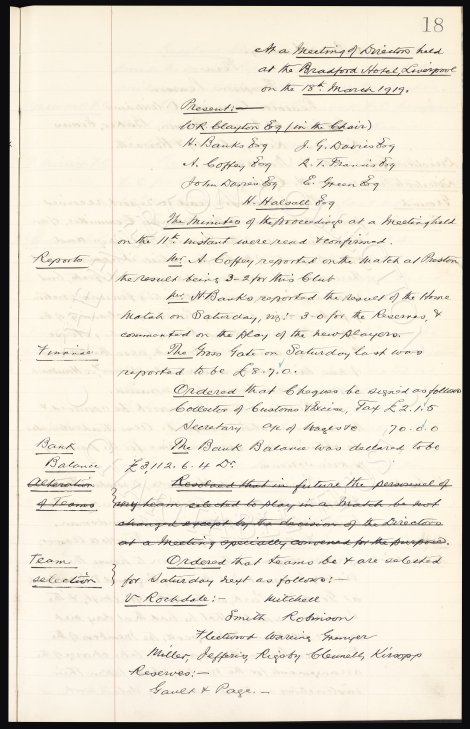 18
At a Meeting of Directors held
at the Bradford Hotel, Liverpool
on the 18th March 1919.
Present:-
W.R. Clayton Esq (in the Chair)
H. Banks Esq J. G. Davies Esq
A. Coffey Esq R. T. Francis Esq
John Davies Esq E. Green Esq
H. Halsall Esq
The Minutes of the proceedings at a Meeting held
on the 11th instant were read & confirmed.
Reports Mr. A. Coffey reported on the Match at Preston
the result being 3-2 for this Club
Mr. H Banks reported the result of the Home
Match on Saturday, viz:- 3-0 for the Reserves, &
commented on the play of the new players.
Finance The Gross Gate on Saturday last was
reported to be £8.7.0.
Ordered that Cheques be signed as follows
Collector of Customs & Excise, Tax £2.1.5
Secretary a/c of Wages &c 70.0.0
Bank The Bank Balance was declared to be
Balance £3,112.6.4 Dr.
Alteration Resolved that in future the personnel of
of Teams any team selected to play in a Match be not
changed except by the decision of the Directors
at a Meeting specially convened for the purpose.
Team Ordered that teams be & are selected
selection for Saturday next as follows:-
V Rochdale:- Mitchell
Smith Robinson
Fleetwood Wareing Grenyer
Miller, Jefferis, Rigsby, Clennell, Kirsopp
Reserves:-
Gault & Page.-